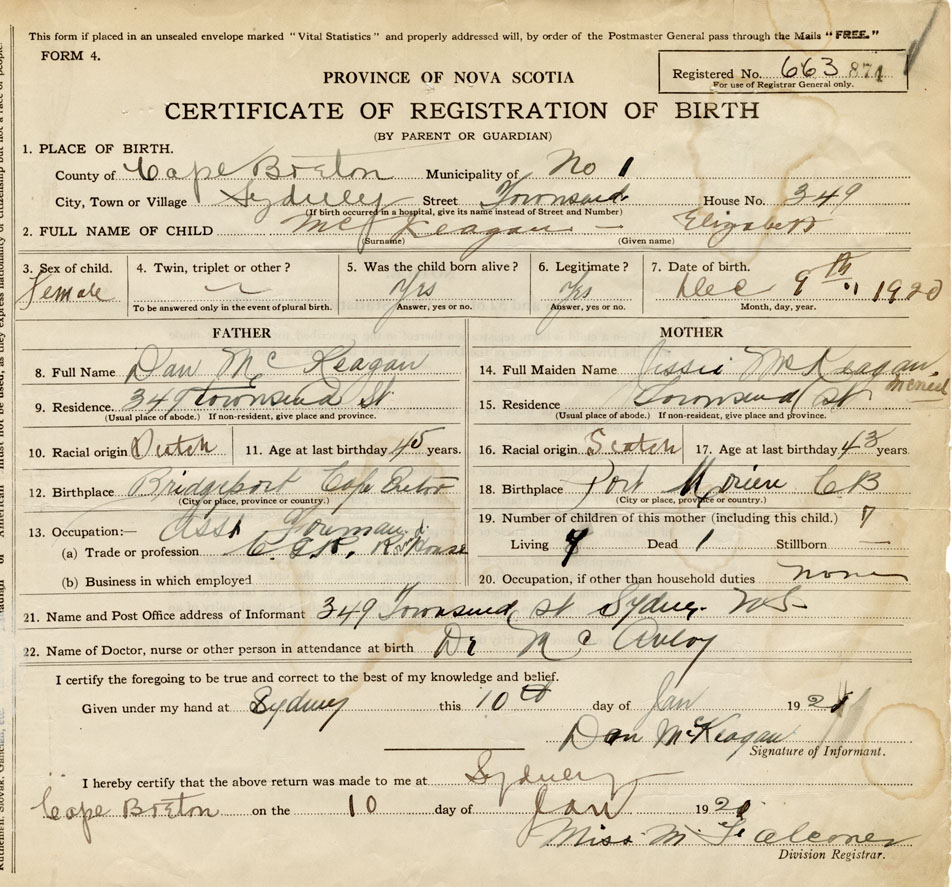 This form if placed in an unsealed envelope marked "Vital Statistics" and properly addressed will, by order of the Postmaster General pass through the Mails "FREE."
FORM 4.
Registered No. 663 874
For use of Registrar General only.
PROVINCE OF NOVA SCOTIA
CERTIFICATE OF REGISTRATION OF BIRTH
(BY PARENT OR GUARDIAN)
1. PLACE OF BIRTH.
County of Cape Breton Municipality of No 1
City, Town or Village Sydney Street Townsend House No. 349
(If birth occurred in a hospital, give its name instead of Street and Number)
2. FULL NAME OF CHILD McKeagan — Elizabeth
(Surname) (Given name)
3. Sex of child. 4. Twin, triplet or other? 5. Was the child born alive? 6. Legitimate? 7. Date of birth.
Female — Yes Yes Dec 9th 1920
To be answered only in the event of plural birth. Answer, yes or no. Answer, yes or no. Month, day, year.
FATHER MOTHER
8. Full Name Dan Mc Keagan
14. Full Maiden Name Jessie McKeagan
McNeil
9. Residence. 349 Townsend St
15. Residence Townsend St
(Usual place of abode.) If non-resident, give place and province.
(Usual place of abode.) If non-resident, give place and province.
10. Racial origin Scotch 11. Age at last birthday 45 years.
16. Racial origin Scotch 17. Age at last birthday 43 years.
12. Birthplace Bridgeport Cape Breton
18. Birthplace Port Morien CB
(City or place, province or country.)
(City or place, province or country.)
13. Occupation:— Asst Foreman
(a) Trade or profession
(b) Business in which employed
19. Number of children of this mother (including this child.) 7
Living Dead 1 Stillborn —
20. Occupation, if other than household duties none
21. Name and Post Office address of Informant 349 Townsend St Sydney N S
22. Name of Doctor, nurse or other person in attendance at birth Dr Mc Avoy
I certify the foregoing to be true and correct to the best of my knowledge and belief.
Given under my hand at Sydney this 10th day of Jan 1921
Dan McKeagan
Signature of Informant.
I hereby certify that the above return was made to me at Sydney
Cape Breton on the 10 day of Jan 1921
Miss M Falconer
Division Registrar.